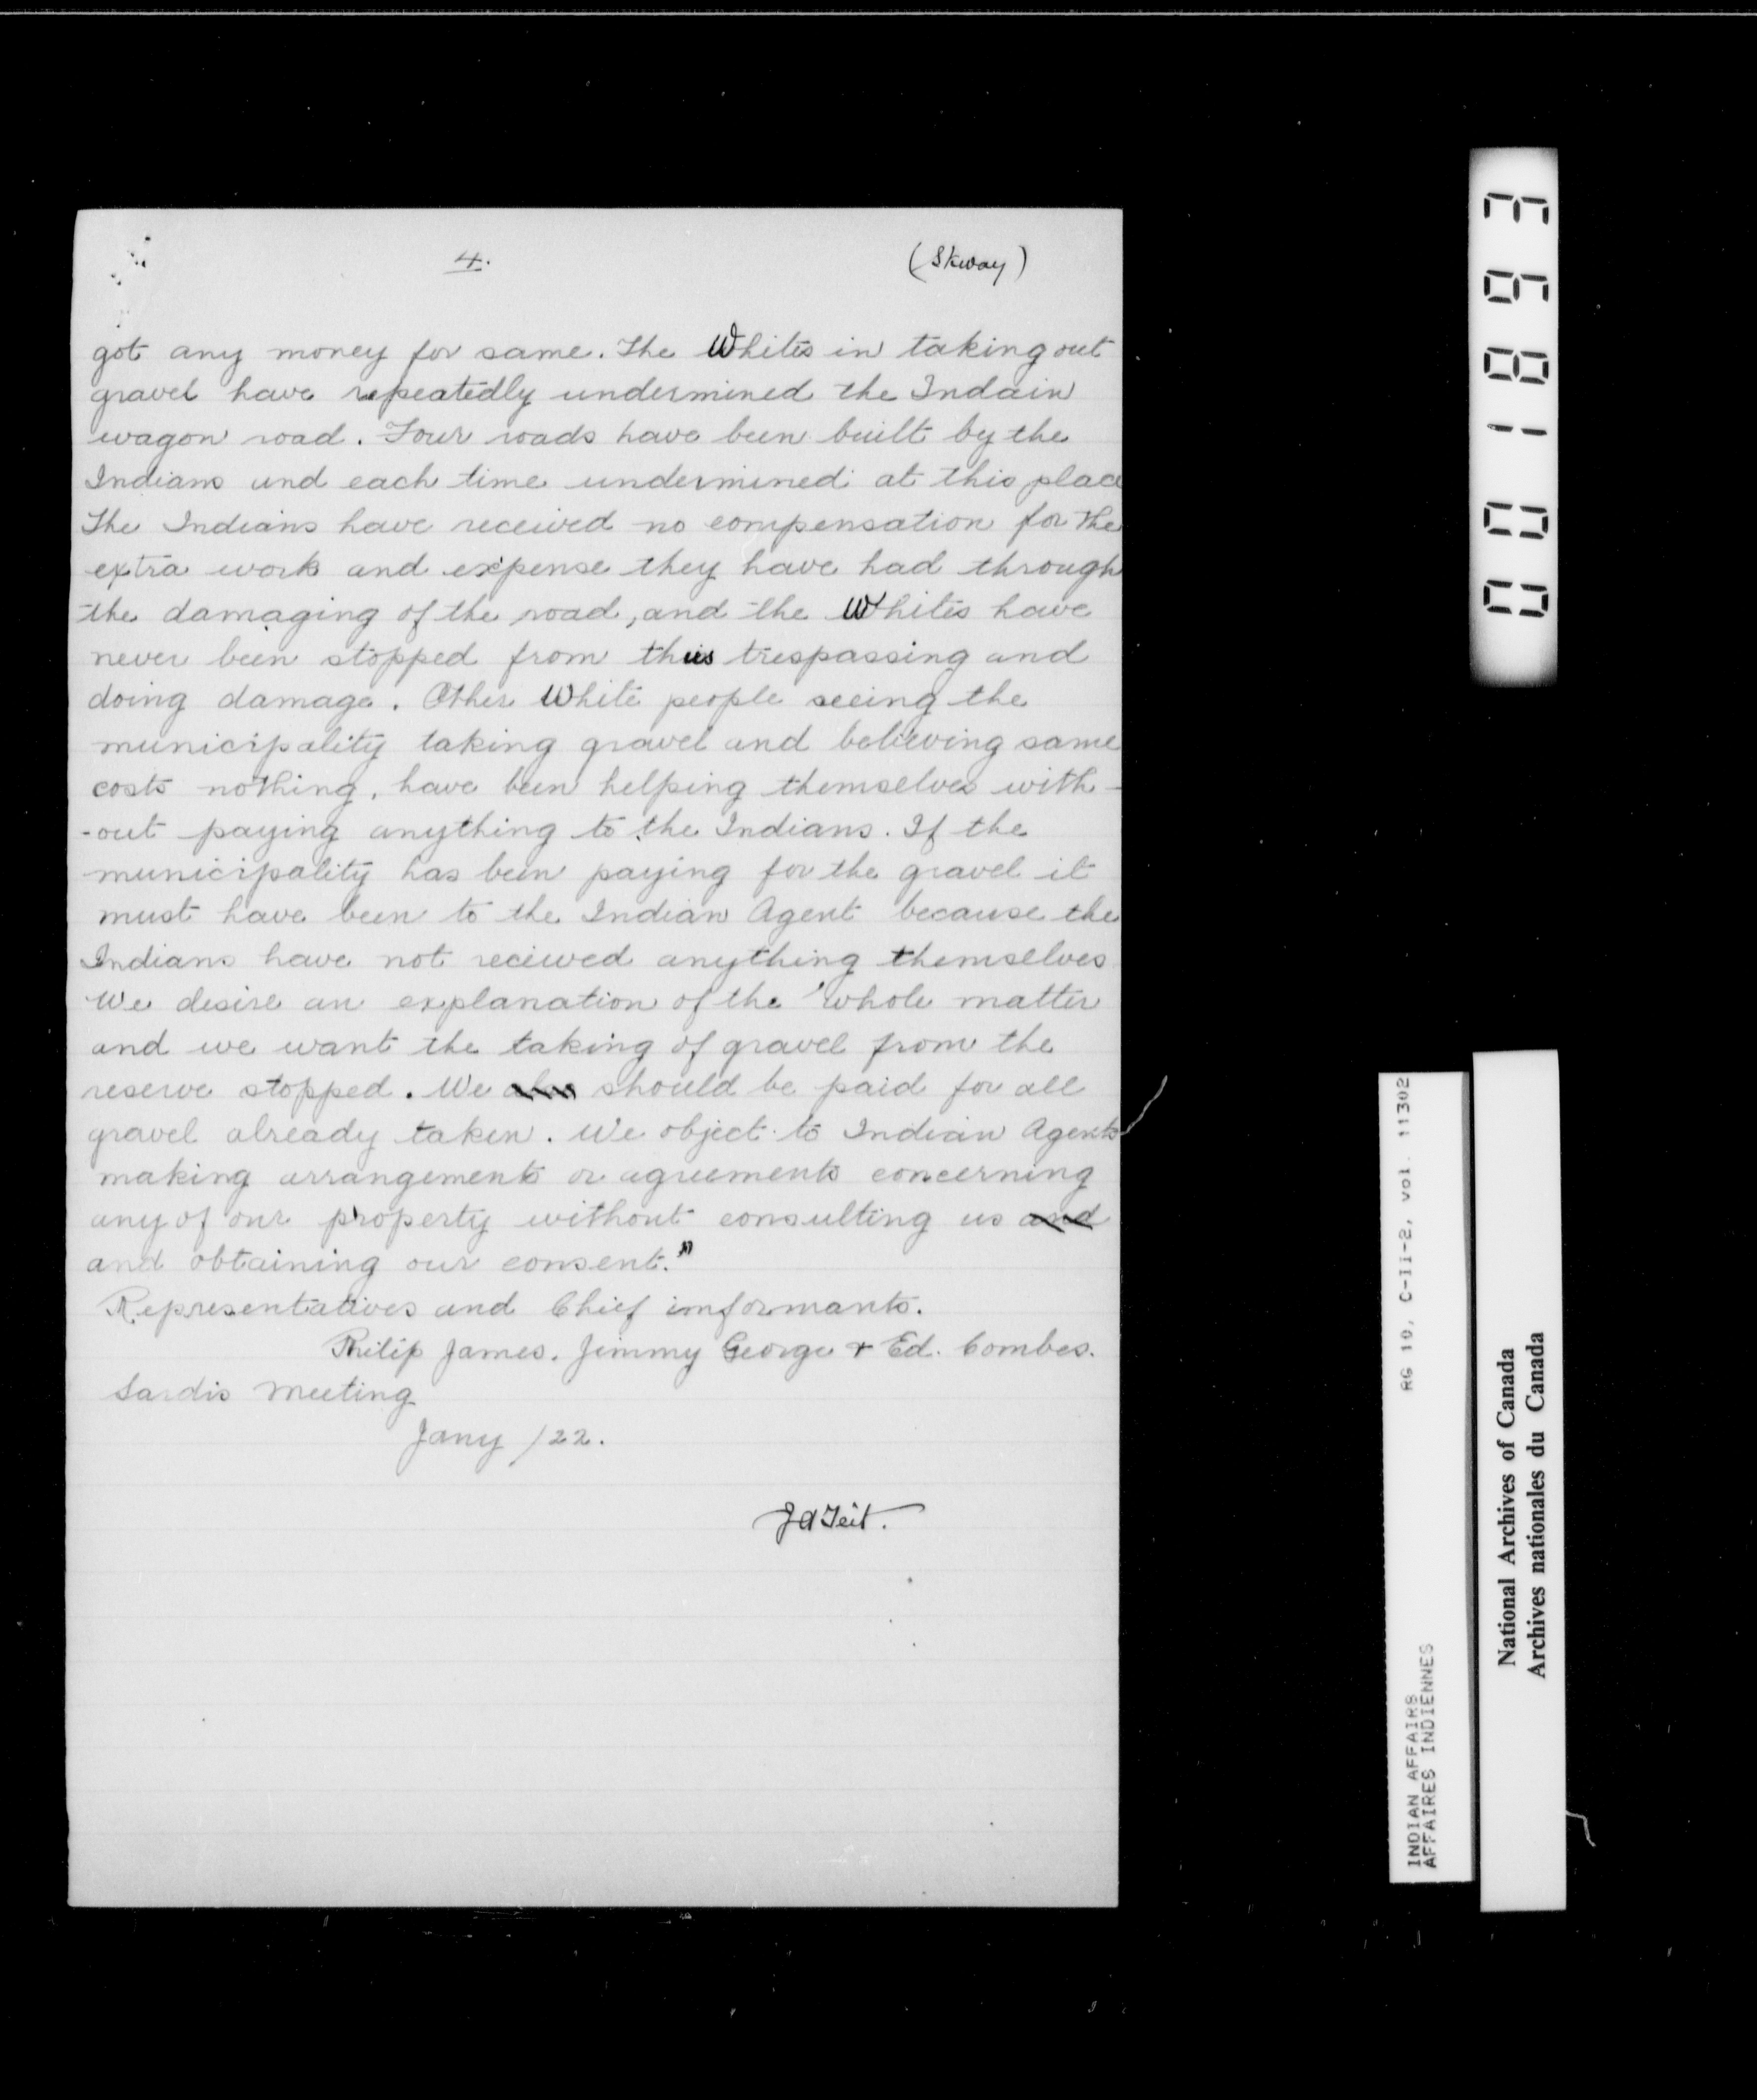 4.
(Skway)
got any money for same. The Whites in taking out
gravel have repeatedly undermined the Indain
wagon road. Four roads have been built by the
Indians and each time undermined at this place
The Indians have received no compensation for the
extra work and expense they have had through
the damaging of the road, and the Whites have
never been stopped from thus trespassing and
doing damage. Other White people seeing the
municipality taking gravel and believing same
costs nothing, have been helping themselves with-
-out paying anything to the Indians. If the
municipality has been paying for the gravel it
must have been to the Indian Agent because the
Indians have not received anything themselves
We desire an explanation of the whole matter
and we want the taking of gravel from the
reserve stopped. We also should be paid for all
gravel already taken. We object to Indian Agents
making arrangements or agreements concerning
any of our property without consulting us and
and obtaining our consent."
Representatives and Chief imformants.
Philip James. Jimmy George + Ed. Combes.
Sardis Meeting
Jany /22.
J A Teit.
001893
RG 10, C-II-2, vol. 11302
INDIAN AFFAIRS
AFFAIRES INDIENNES
National Archives of Canada
Archives nationales du Canada